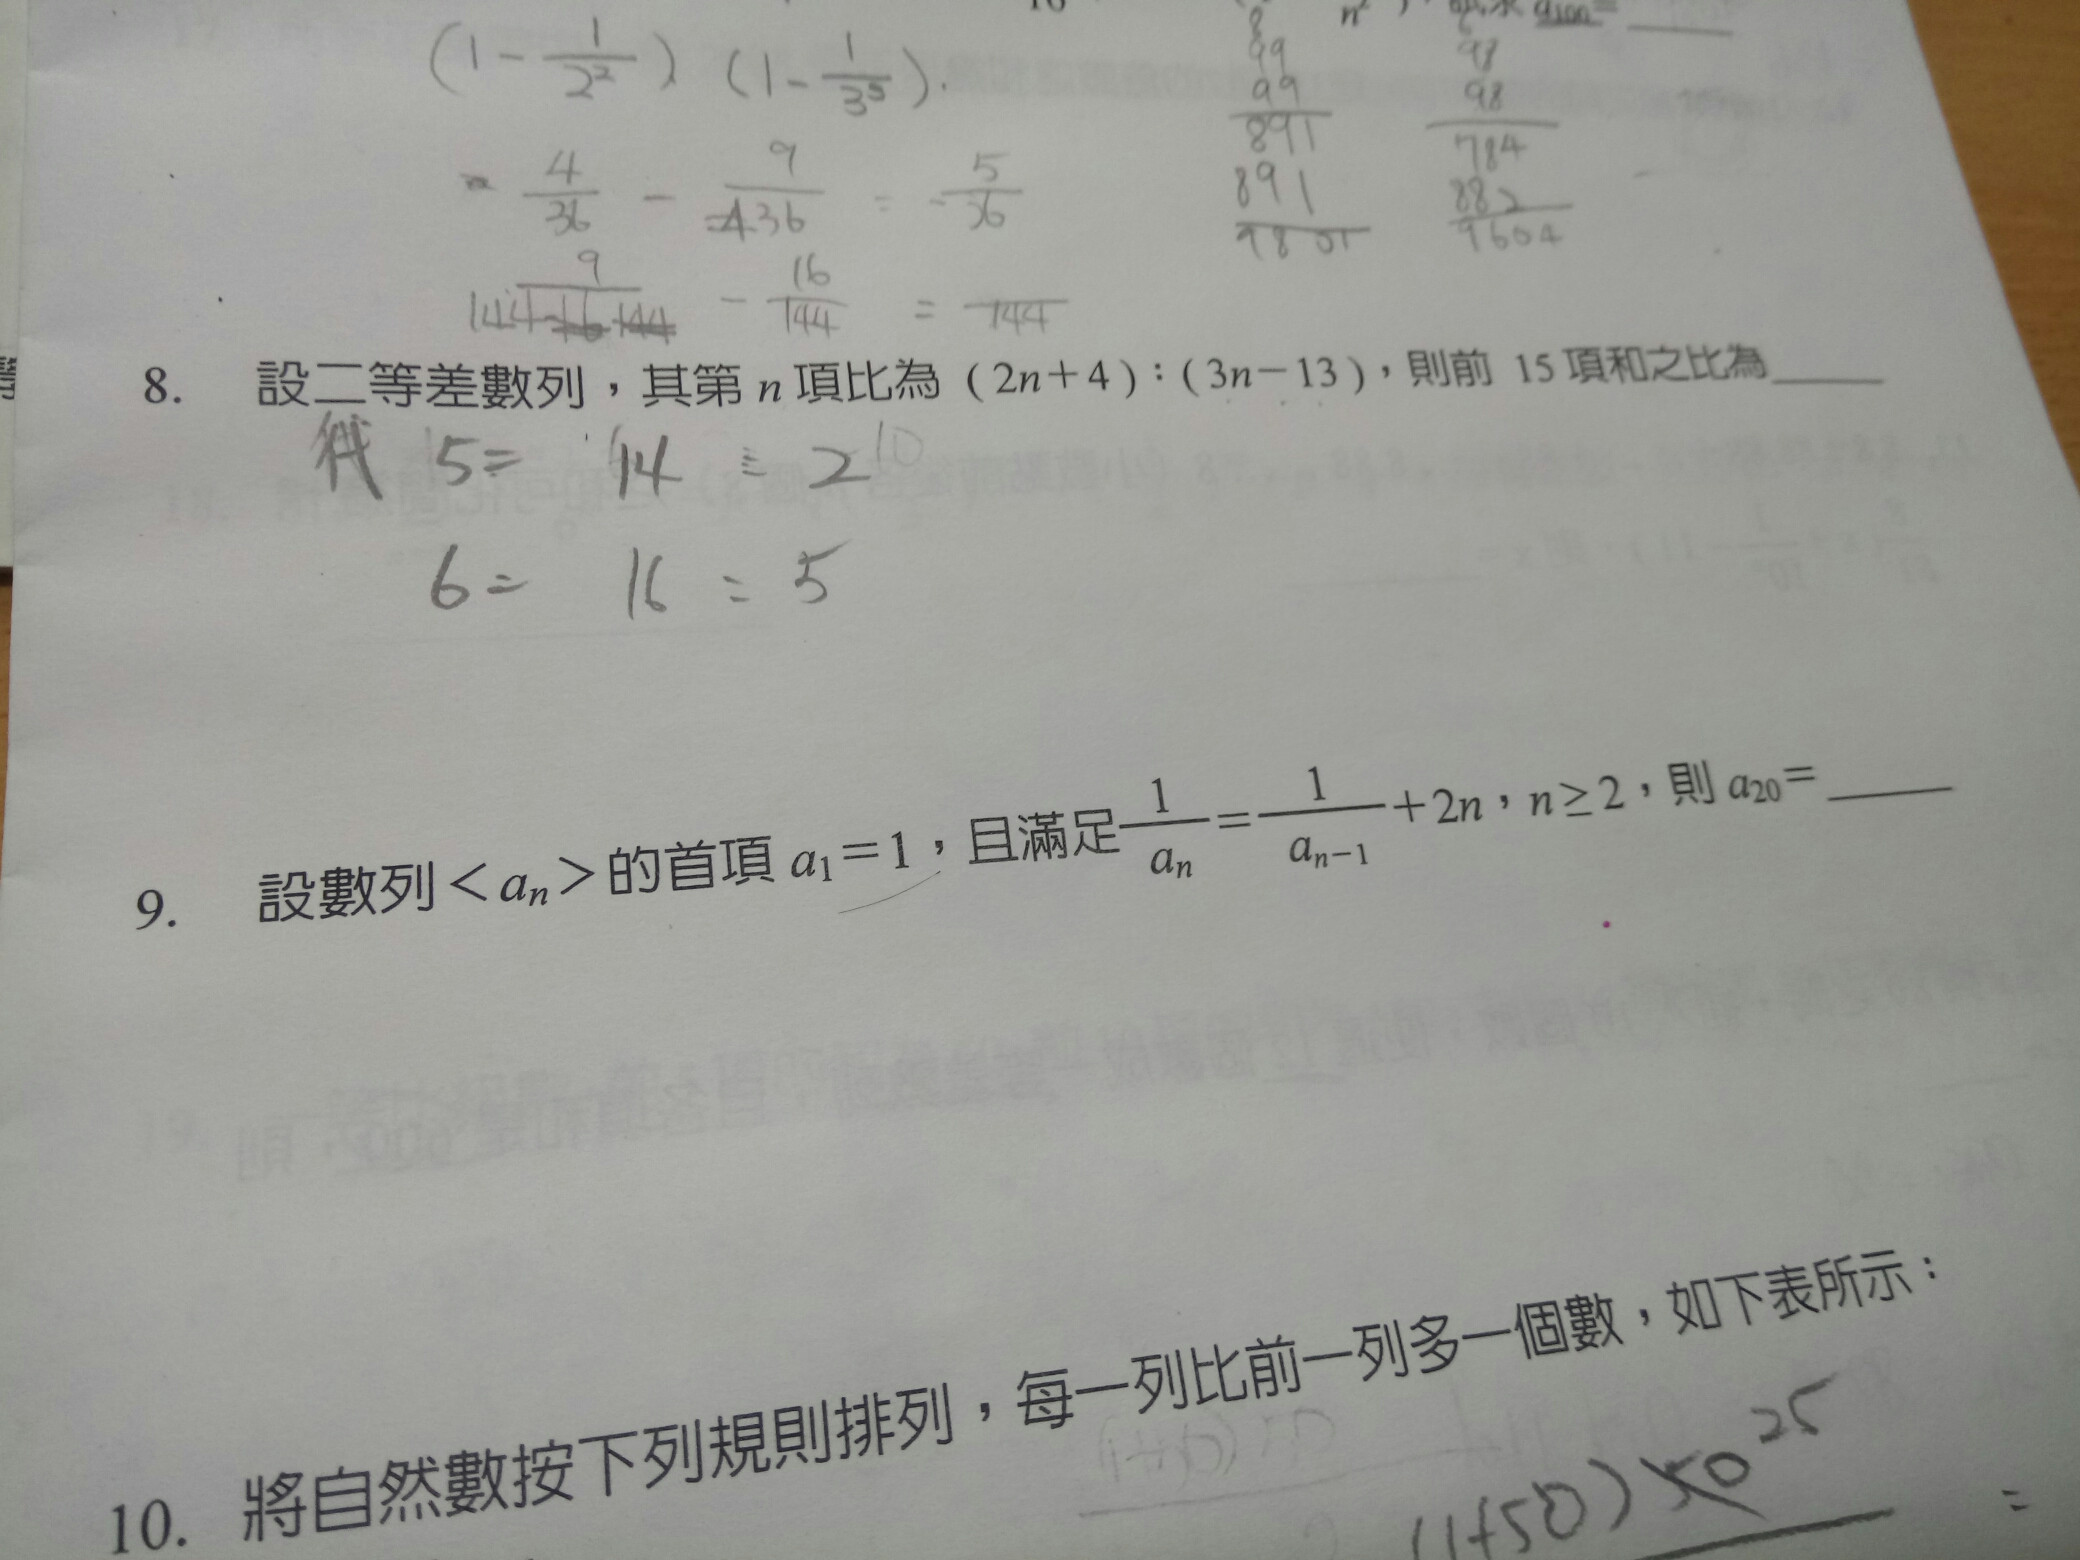 (1 - 1/2²) (1 - 1/3³).
= 4/36 - 9/36 = -5/36
9/144 - 16/144 = /144
99
99
891
891
9801
98
98
784
882
9604
8. 設二等差數列，其第 n 項比為（2n+4）:（3n-13），則前 15 項和之比為____
代 5= 14 : 2
6= 16 : 5
9. 設數列<aₙ>的首項 a₁=1，且滿足 1/aₙ = 1/aₙ₋₁ +2n，n≥2，則 a₂₀=____
10. 將自然數按下列規則排列，每一列比前一列多一個數，如下表所示：
(1+50) 50 25 =